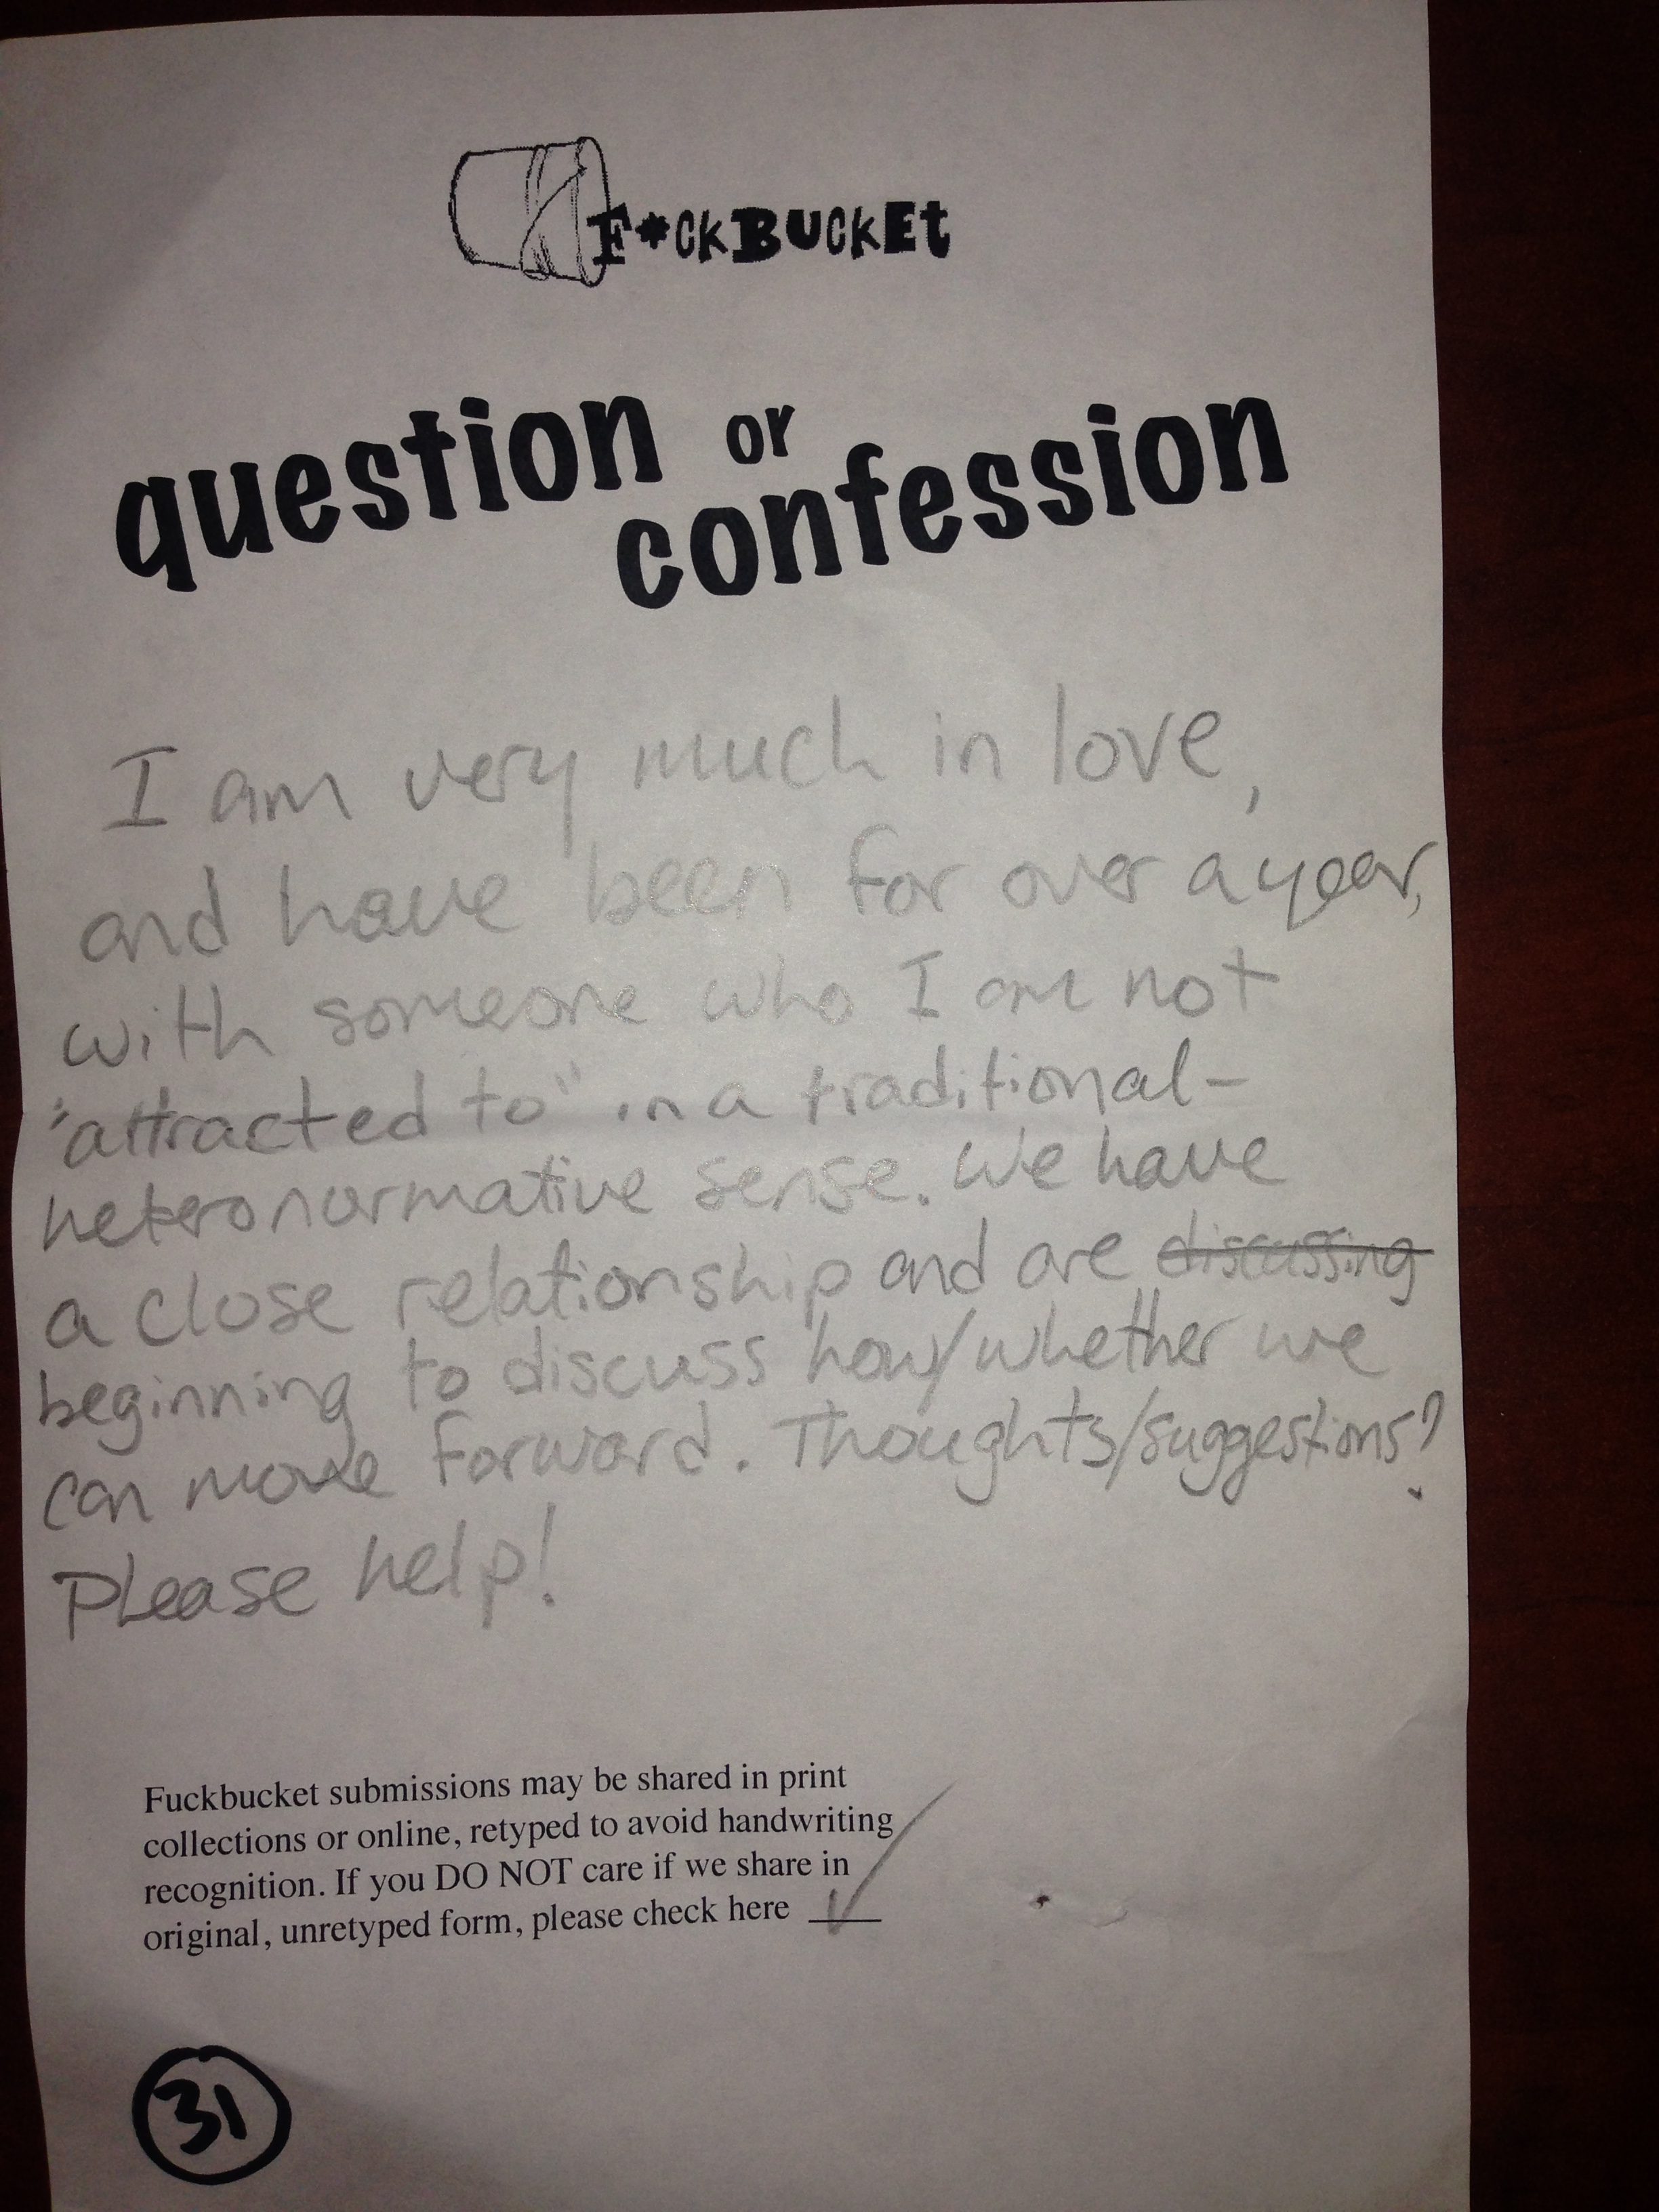 F*CKBUCKEt
question or
confession
I am very much in love,
and have been for over a year,
with someone who I am not
"attracted to" in a traditional-
heteronormative sense. We have
a close relationship and are discussing
beginning to discuss how/whether we
can move forward. Thoughts/suggestions?
Please help!
Fuckbucket submissions may be shared in print
collections or online, retyped to avoid handwriting
recognition. If you DO NOT care if we share in
original, unretyped form, please check here ____
31